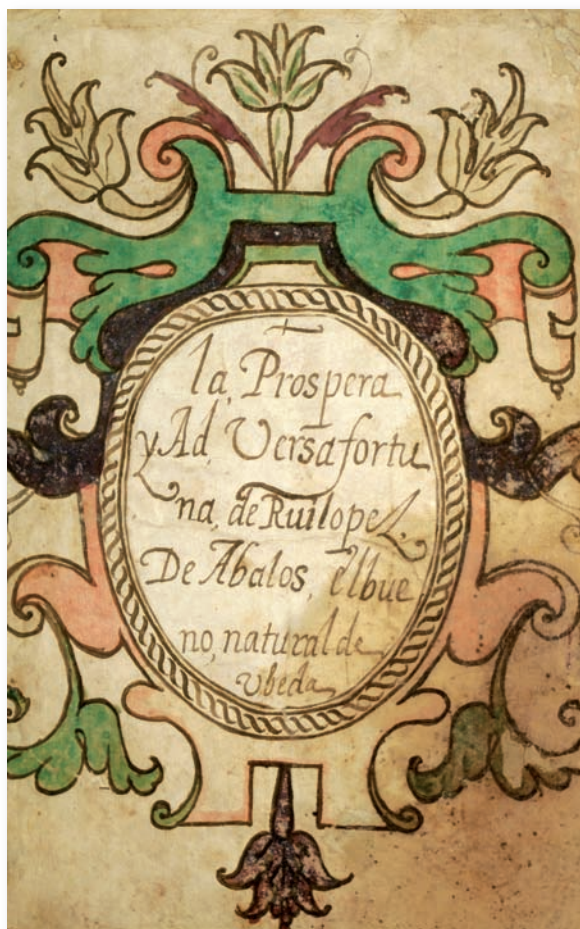 la, Prospera
y Ad, Versa fortu
na, de Ruilopez.
De Abalos, el bue
no, natural de
vbeda